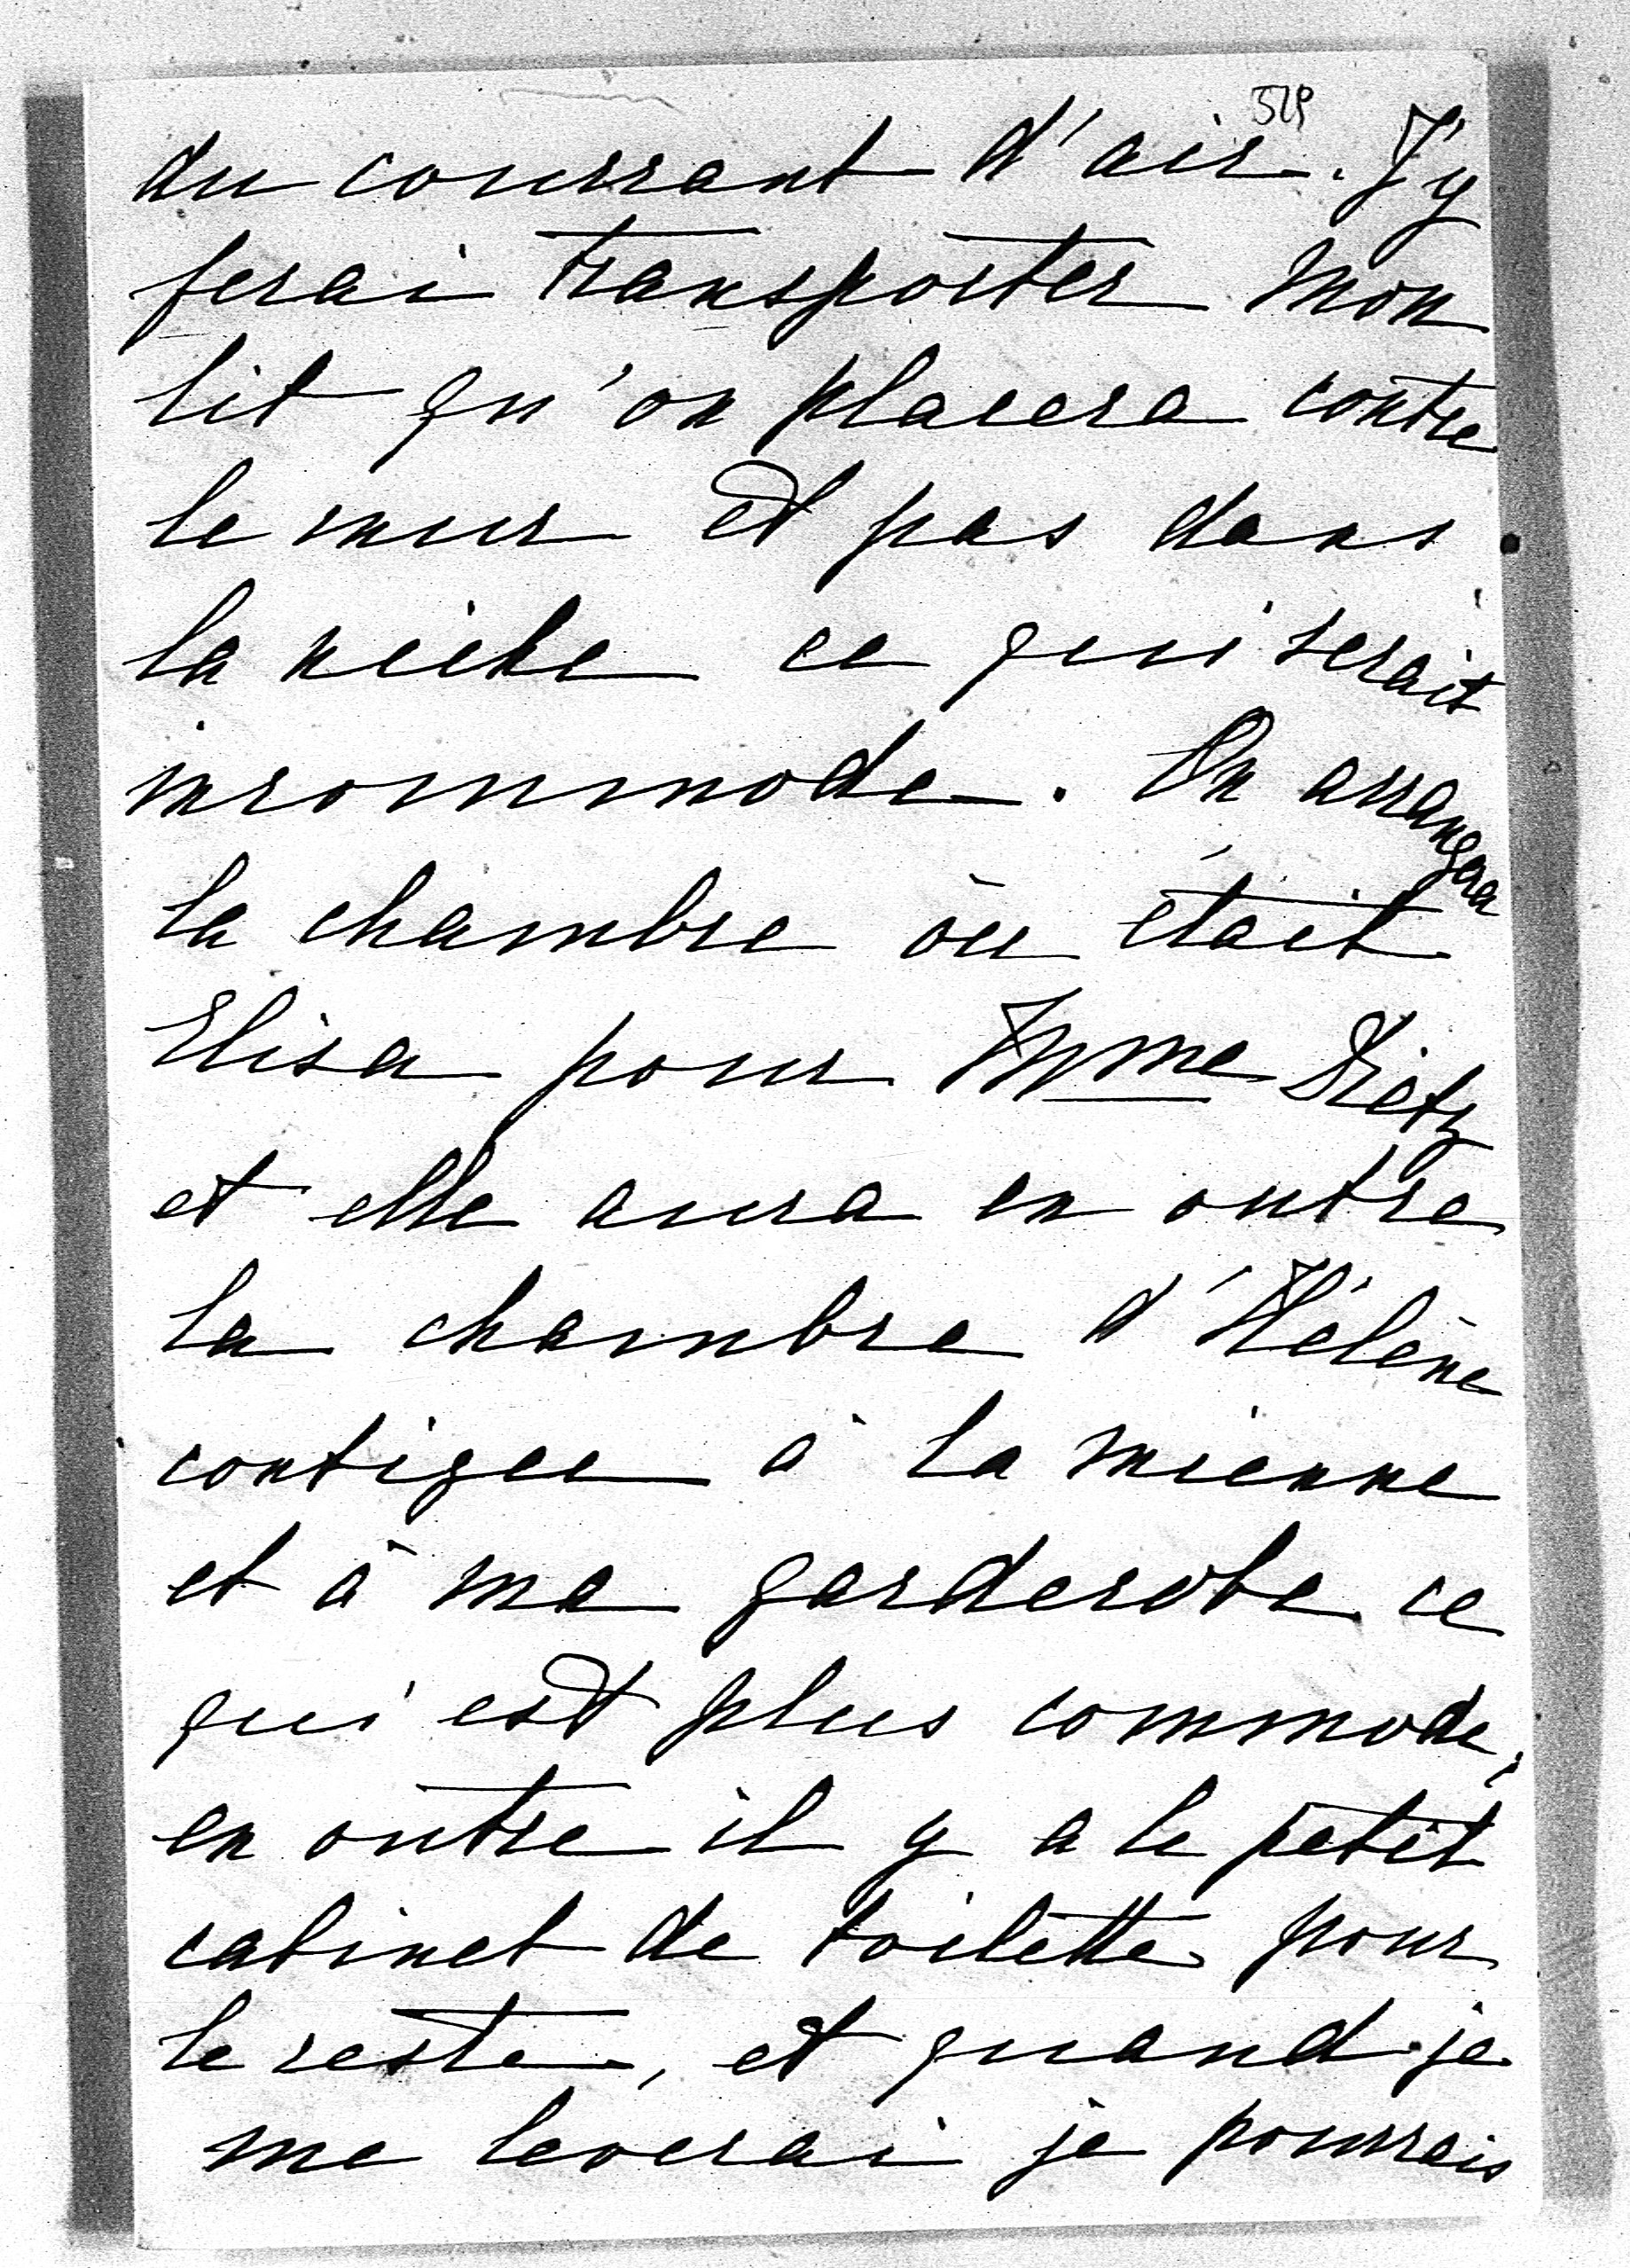 529
du courrant d'air. J'y
ferai transporter mon
lit qu'on placera contre
le mur et pas dans
la niche ce qui serait
incommode. On arrangera
la chambre où était
Elisa pour Mme Dietz
et elle aura en outre
la chambre d'Hélène
contigee à la mienne
et à ma garderobe ce
qui est plus commode,
en outre il y a le petit
cabinet de toilette pour
le reste, et quand je
me leverai je pourrais